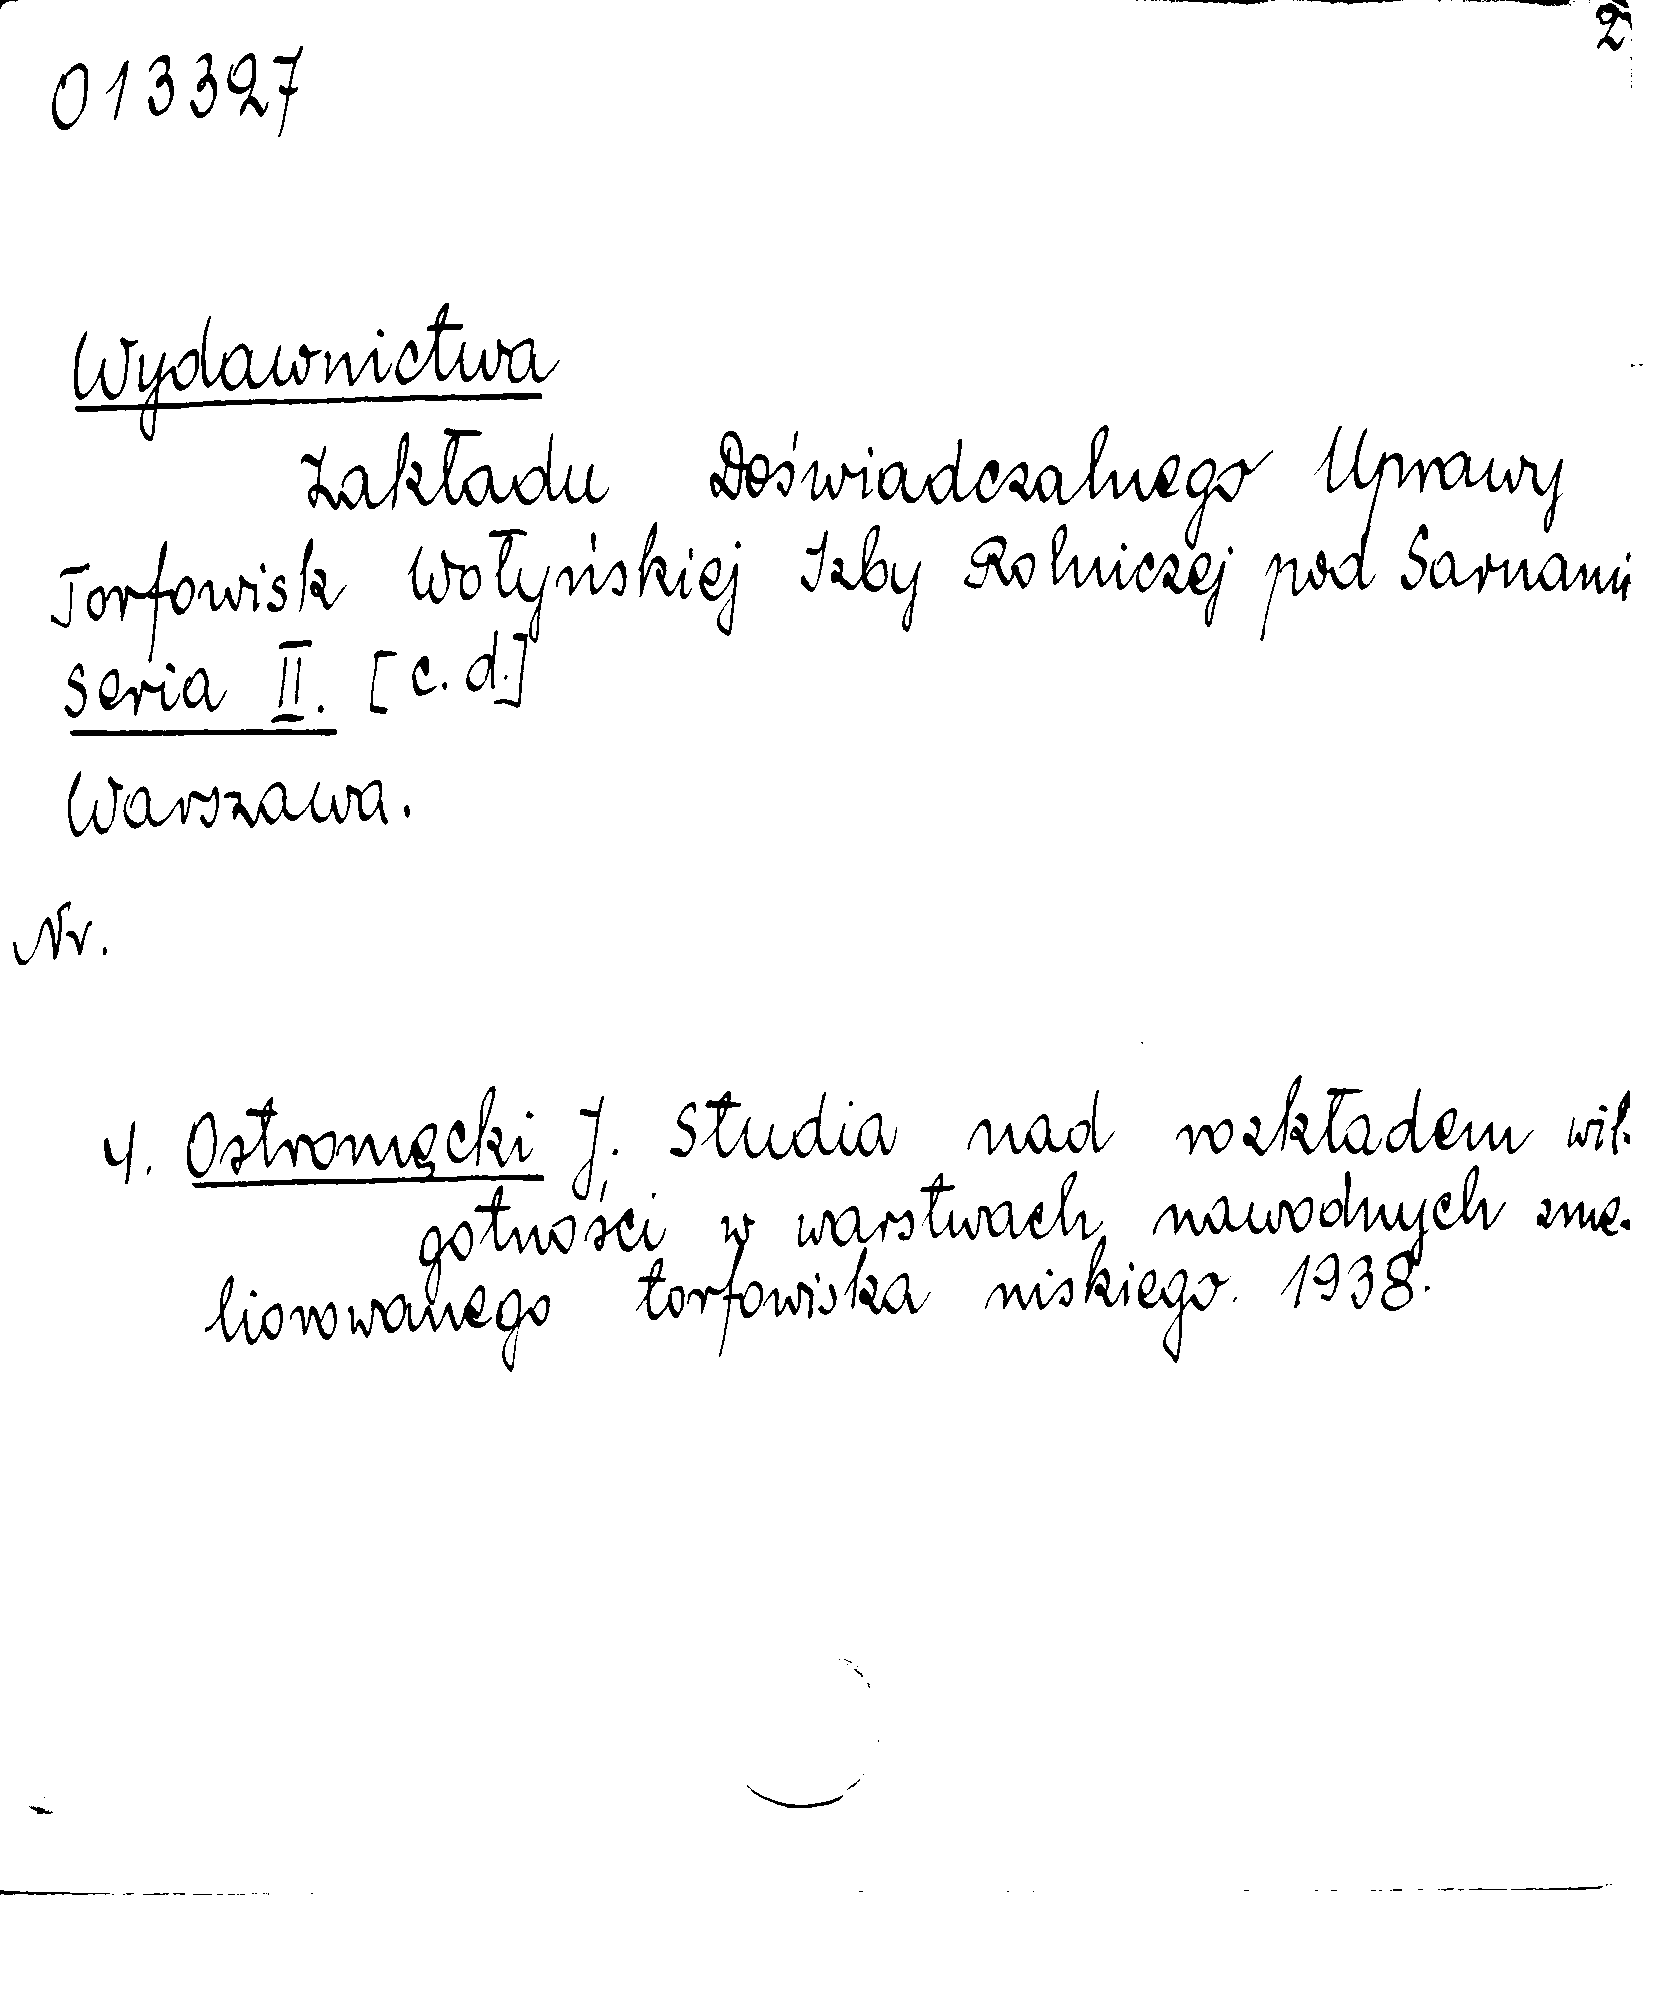 2
013327
Wydawnictwa
Zakładu Doświadczalnego Uprawy
Torfowisk Wołyńskiej Izby Rolniczej pod Sarnami
Seria II. [c.d.]
Warszawa.
Nr.
4. Ostromęcki J. Studia nad rozkładem wil-
gotności w warstwach nawodnych zme-
liorowanego torfowiska niskiego. 1938.